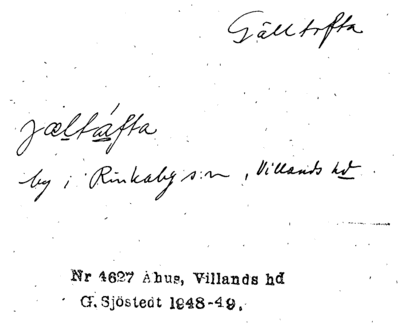 Gälltofta
jæltáfta
by i Rinkaby s:n, Villands hd
Nr 4627 Åhus, Villands hd
G. Sjöstedt 1948-49.